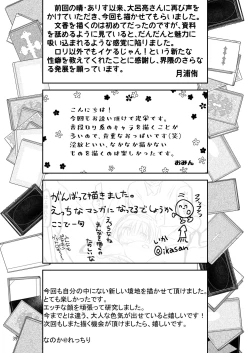 前回の晴・ありす以来、大呂亮さんに再び声を
かけていただき、今回も描かせてもらいました。
文香を描くのは初めてだったのですが、資料
を舐めるように見ていると、だんだんと魅力に
吸い込まれるような感覚に陥りました。
ロリ以外でもイケるじゃん！という新たな
性癖を教えてくれたことに感謝し、界隈のさらな
る発展を願っています。
月浦侑
こんにちは！
今回もお誘い頂けて光栄です。
普段ロリ系のキャラを描くことが
多いので、貴重なお一つです(笑)
淫語といい、なかなか描かない
ものを描くのは楽しかったです。
おみん
がんばって描きました。
えっちなマンガになってるでしょうか
ここで一句
いか
@ikasan
今回も自分の中にない新しい境地を描かせて頂けました。
とても楽しかったです。
エッチな顔を頑張って研究しました。
今までとは違う、大人な色気が出せていると嬉しいです！
次回もしまた描く機会が頂けましたら、嬉しいです。
なのか@れっちり